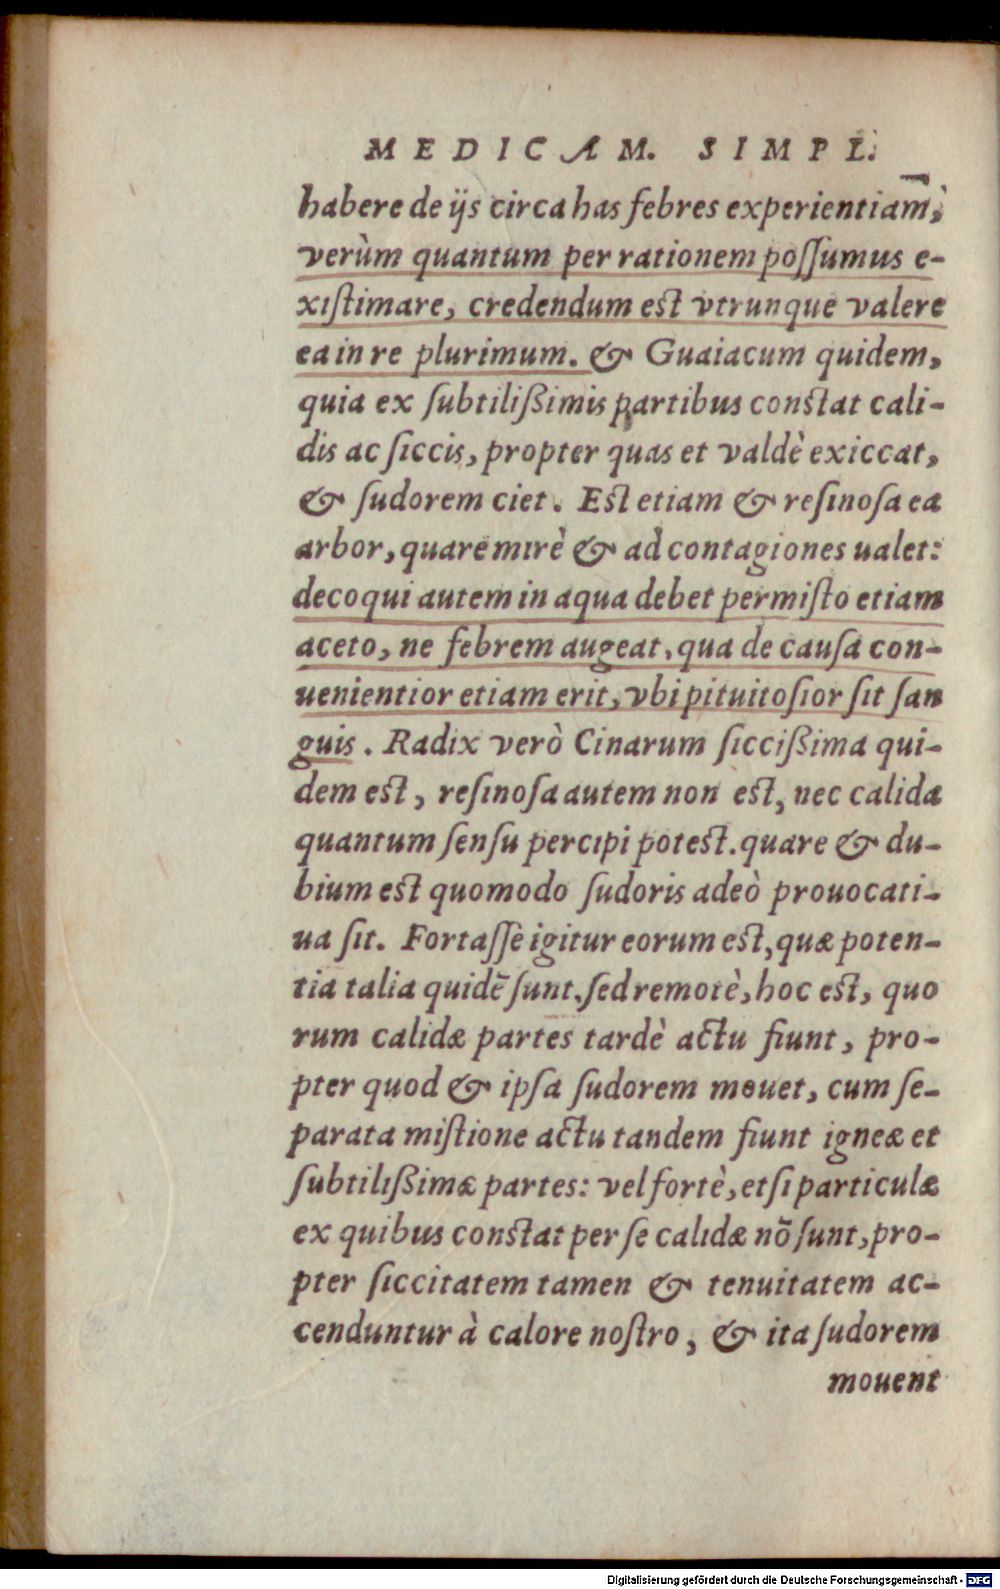 MEDICAM. SIMPL.
habere de ijs circa has febres experientiam,
verùm quantum per rationem possumus e-
xistimare, credendum est vtrunque valere
ea in re plurimum. & Guaiacum quidem,
quia ex subtilißimis partibus constat cali-
dis ac siccis, propter quas et valdè exiccat,
& sudorem ciet. Est etiam & resinosa ea
arbor, quare mirè & ad contagiones ualet:
decoqui autem in aqua debet permisto etiam
aceto, ne febrem augeat, qua de causa con-
uenientior etiam erit, vbi pituitosior sit san
guis. Radix verò Cinarum siccißima qui-
dem est, resinosa autem non est, nec calida
quantum sensu percipi potest. quare & du-
bium est quomodo sudoris adeò prouocati-
ua sit. Fortasse igitur eorum est, quæ poten-
tia talia quidē sunt. sed remotè, hoc est, quo
rum calidæ partes tardè actu fiunt, pro-
pter quod & ipsa sudorem mouet, cum se-
parata mistione actu tandem fiunt igneæ et
subtilißimæ partes: vel fortè, etsi particulæ
ex quibus constat per se calidæ nō sunt, pro-
pter siccitatem tamen & tenuitatem ac-
cenduntur à calore nostro, & ita sudorem
mouent
Digitalisierung gefördert durch die Deutsche Forschungsgemeinschaft - DFG